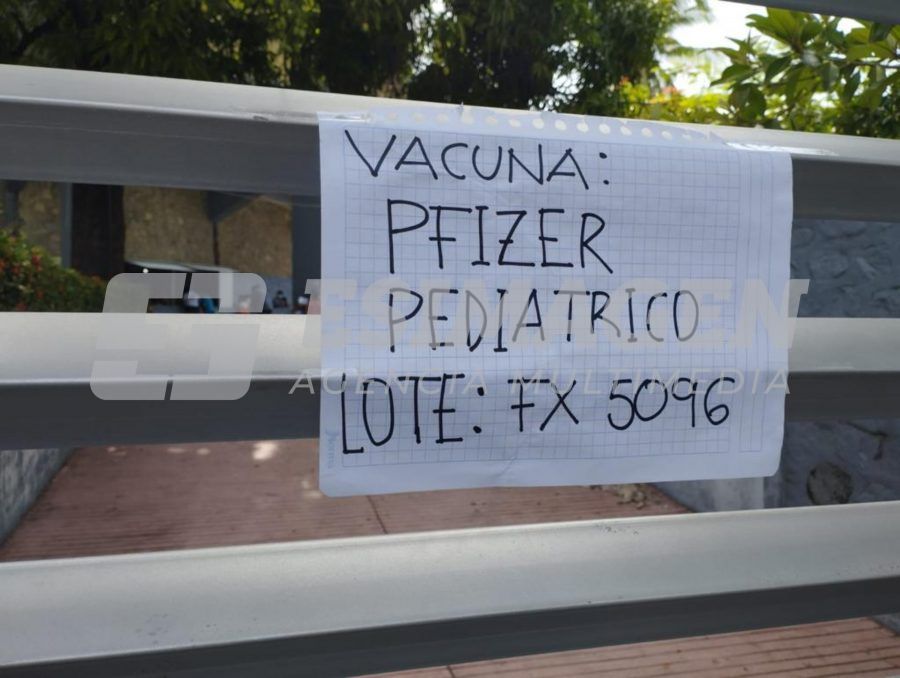 VACUNA:
PFIZER
PEDIATRICO
LOTE: FX 5096
ESIMAGEN
AGENCIA MULTIMEDIA